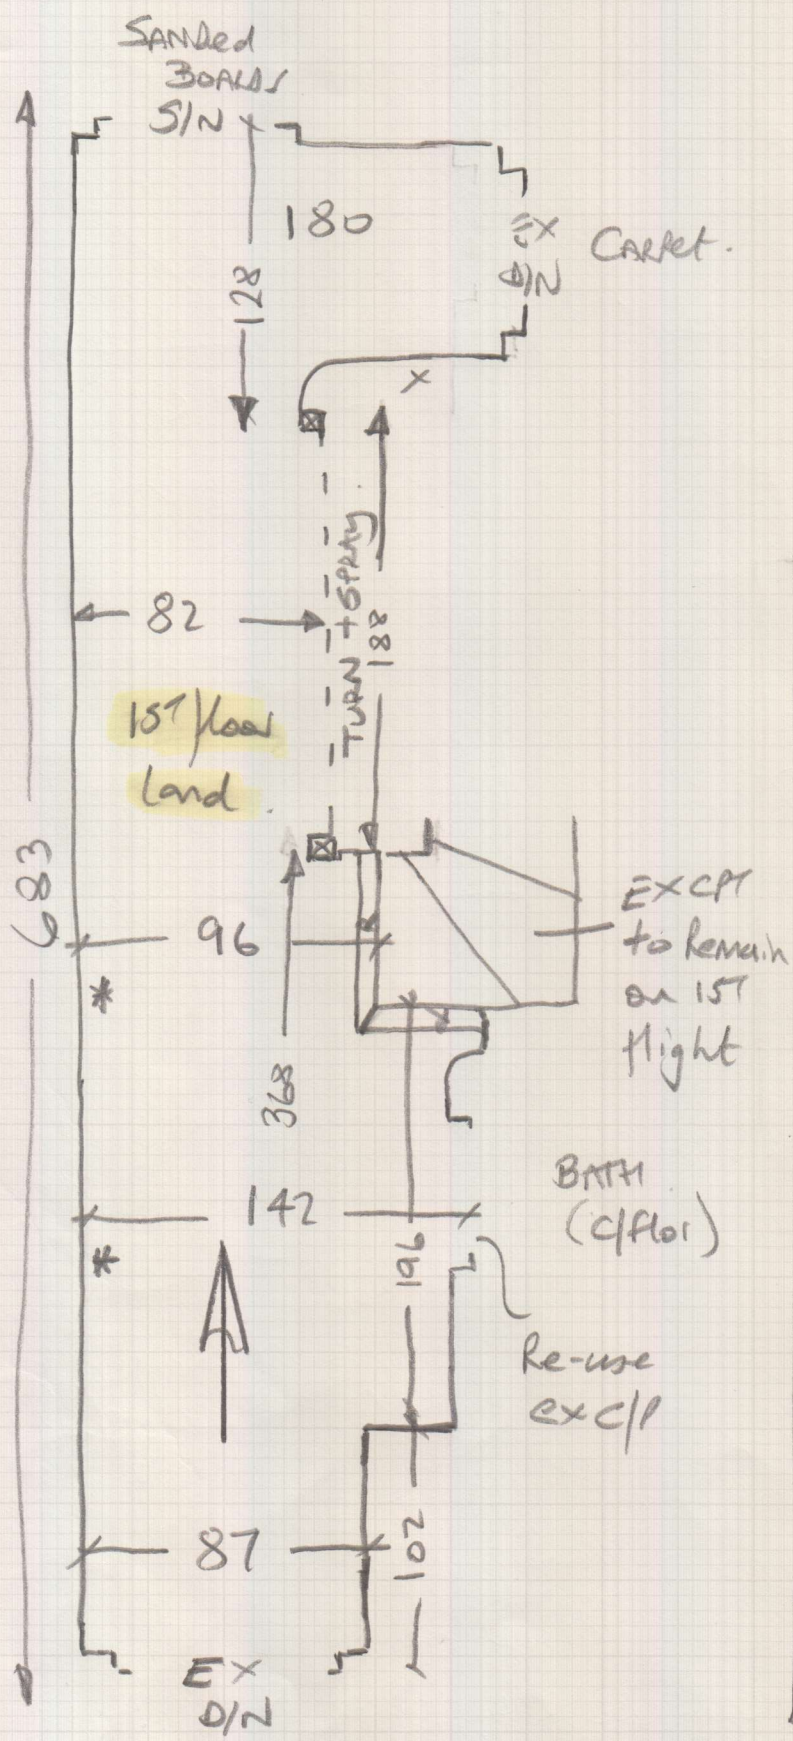 SANDed
BOARDS
S/N
180
128
EX
D/N
CARPet.
X
TURN + SPRAY
188
82
1ST floor
Land.
683
96
*
EX CPT
to Remain
on 1ST
flight
368
142
*
BATH
(C/flor)
196
Re-use
ex C/P
87
102
EX
D/N